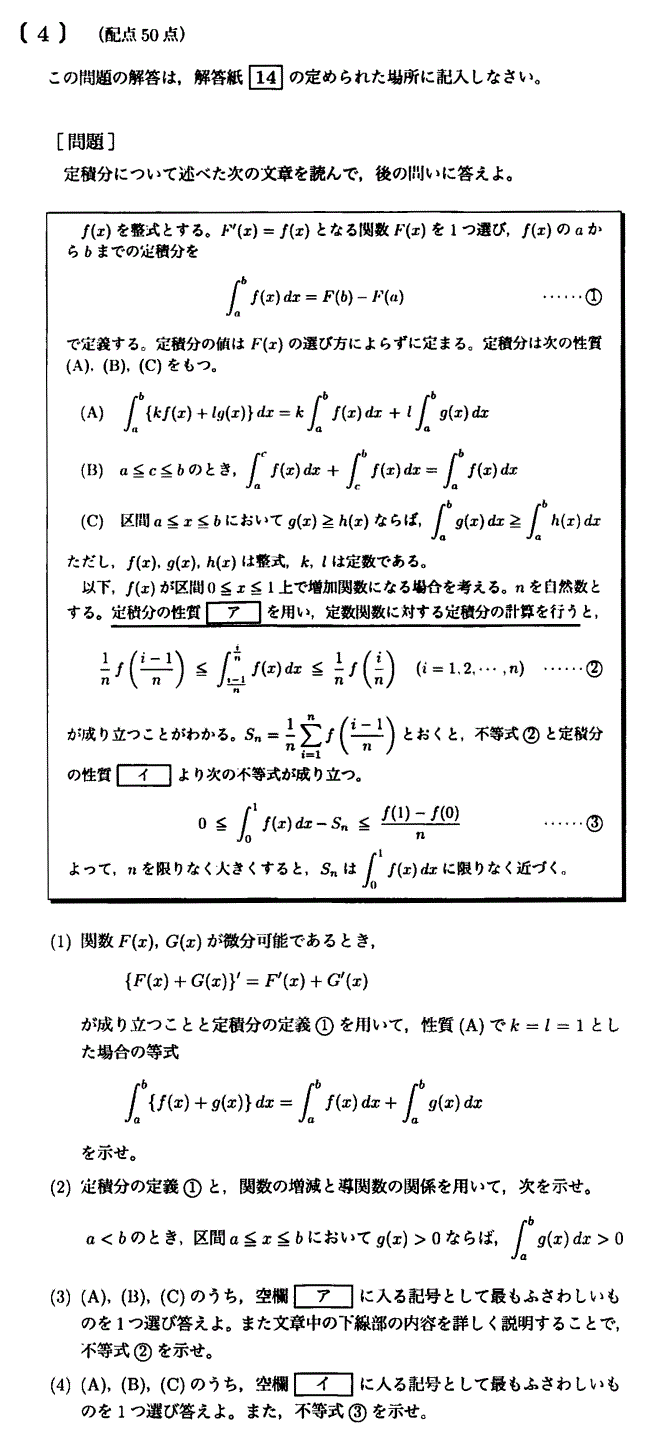 〔 4 〕 (配点 50 点)
この問題の解答は，解答紙 14 の定められた場所に記入しなさい。
［問題］
定積分について述べた次の文章を読んで，後の問いに答えよ。
f(x) を整式とする。F′(x) = f(x) となる関数 F(x) を 1 つ選び，f(x) の a か
ら b までの定積分を
∫_a^b f(x) dx = F(b) − F(a) ……①
で定義する。定積分の値は F(x) の選び方によらずに定まる。定積分は次の性質
(A)，(B)，(C) をもつ。
(A) ∫_a^b {kf(x) + lg(x)} dx = k ∫_a^b f(x) dx + l ∫_a^b g(x) dx
(B) a ≦ c ≦ b のとき，∫_a^c f(x) dx + ∫_c^b f(x) dx = ∫_a^b f(x) dx
(C) 区間 a ≦ x ≦ b において g(x) ≧ h(x) ならば，∫_a^b g(x) dx ≧ ∫_a^b h(x) dx
ただし，f(x)，g(x)，h(x) は整式，k，l は定数である。
以下，f(x) が区間 0 ≦ x ≦ 1 上で増加関数になる場合を考える。n を自然数と
する。定積分の性質 ア を用い，定数関数に対する定積分の計算を行うと，
1/n f((i−1)/n) ≦ ∫_{(i−1)/n}^{i/n} f(x) dx ≦ 1/n f(i/n) (i = 1, 2, ⋯, n) ……②
が成り立つことがわかる。S_n = 1/n ∑_{i=1}^n f((i−1)/n) とおくと，不等式 ② と定積分
の性質 イ より次の不等式が成り立つ。
0 ≦ ∫_0^1 f(x) dx − S_n ≦ (f(1) − f(0))/n ……③
よって，n を限りなく大きくすると，S_n は ∫_0^1 f(x) dx に限りなく近づく。
(1) 関数 F(x)，G(x) が微分可能であるとき，
{F(x) + G(x)}′ = F′(x) + G′(x)
が成り立つことと定積分の定義 ① を用いて，性質 (A) で k = l = 1 とし
た場合の等式
∫_a^b {f(x) + g(x)} dx = ∫_a^b f(x) dx + ∫_a^b g(x) dx
を示せ。
(2) 定積分の定義 ① と，関数の増減と導関数の関係を用いて，次を示せ。
a < b のとき，区間 a ≦ x ≦ b において g(x) > 0 ならば，∫_a^b g(x) dx > 0
(3) (A)，(B)，(C) のうち，空欄 ア に入る記号として最もふさわしいも
のを 1 つ選び答えよ。また文章中の下線部の内容を詳しく説明することで，
不等式 ② を示せ。
(4) (A)，(B)，(C) のうち，空欄 イ に入る記号として最もふさわしいも
のを 1 つ選び答えよ。また，不等式 ③ を示せ。